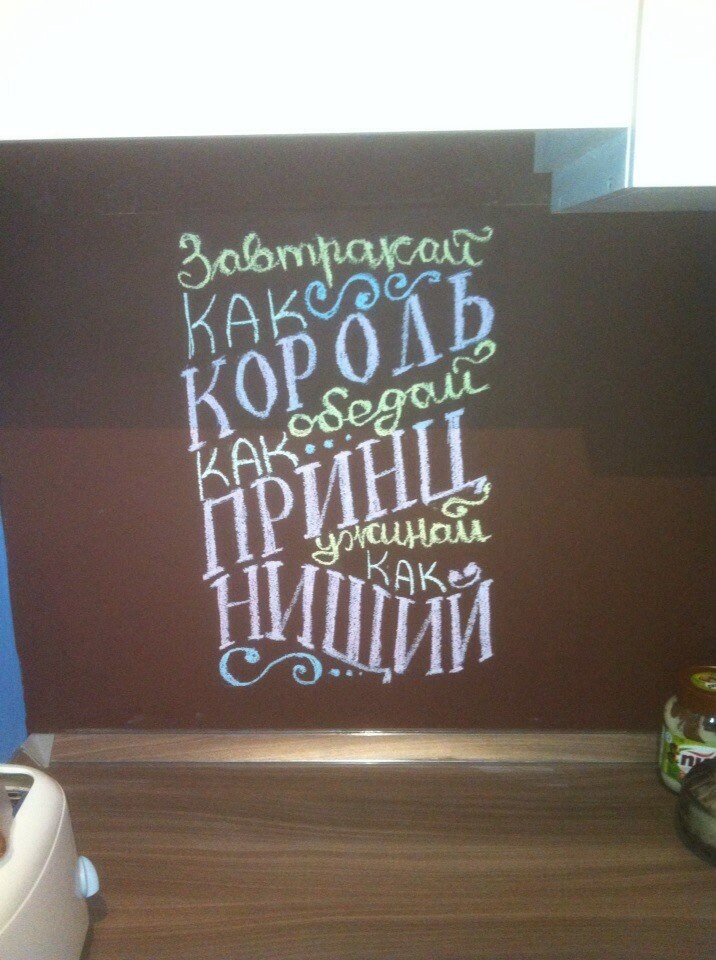 Завтракай
КАК
КОРОЛЬ
обедай
КАК
ПРИНЦ
ужинай
КАК
НИЩИЙ